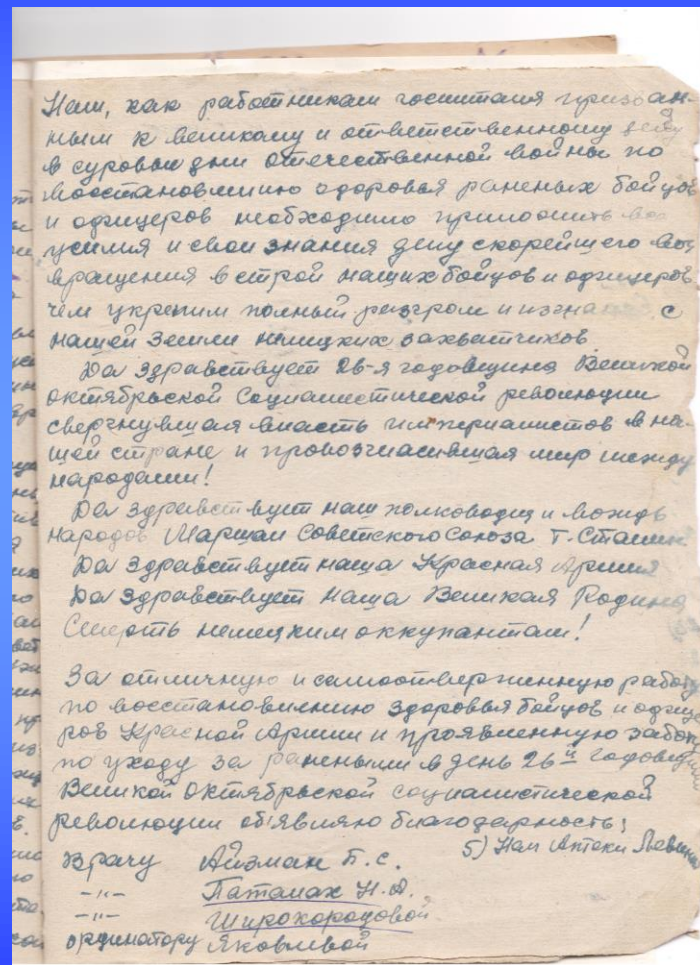 Нам, как работникам госпиталя призван-
ным к великому и ответственному делу
в суровые дни отечественной войны по
восстановлению здоровья раненых бойцов
и офицеров необходимо приложить все
усилия и свои знания делу скорейшего воз
вращения в строй наших бойцов и офицеров
чем укрепим полный разгром и изгна с
нашей земли немецких захватчиков.
Да здравствует 26-я годовщина Великой
октябрьской Социалистической революции
свергнувшая власть империалистов в на-
шей стране и провозгласившая мир между
народами!
Да здравствует наш полководец и вождь
народов Маршал Советского Союза т. Сталин
Да здравствует наша Красная Армия
Да здравствует наша Великая Родина
Смерть немецким оккупантам!
За отличную и самоотверженную работу
по восстановлению здоровья бойцов и офице
ров Красной Армии и проявленную забот
по уходу за ранеными в день 26й годовщины
Великой октябрьской социалистической
революции об'являю благодарность:
Врачу Айзман Б.С. 5) Нач Аптеки Левина
-"- Паталах Н.А.
-"- Широкородовой
ординатору Яковлевой